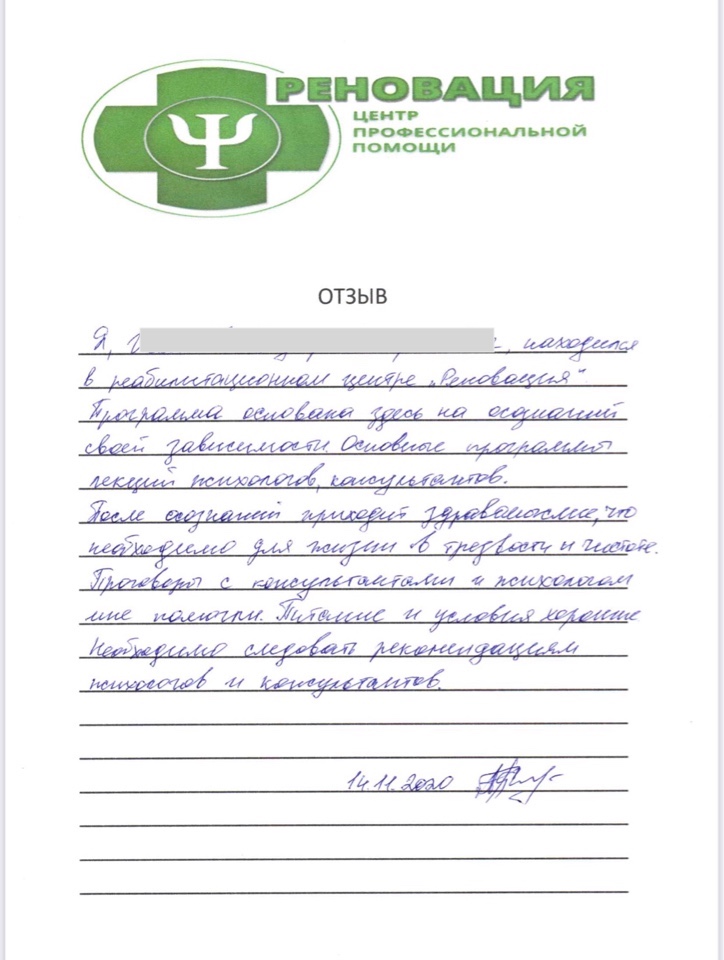 РЕНОВАЦИЯ
ЦЕНТР
ПРОФЕССИОНАЛЬНОЙ
ПОМОЩИ
Ψ
ОТЗЫВ
Я, , находился
в реабилитационном центре „Реновация“
Программа основана здесь на осознании
своей зависимости. Основные программы
лекций психологов, консультантов.
После осознаний приходит что
необходимо для жизни в трезвости и чистоте.
Проговоры с консультантами и психологом
мне помогли. Питание и условия хорошие
Необходимо следовать рекомендациям
психологов и консультантов.
14.11.2020